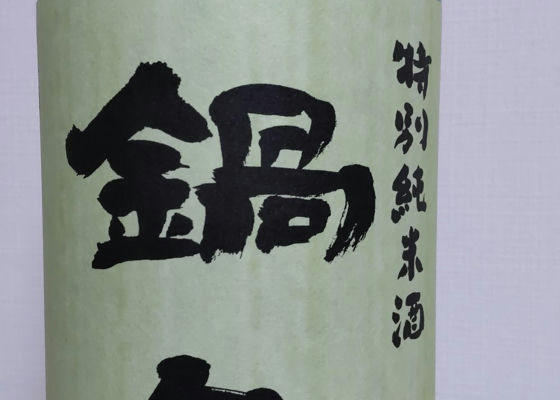 特別純米酒
鍋